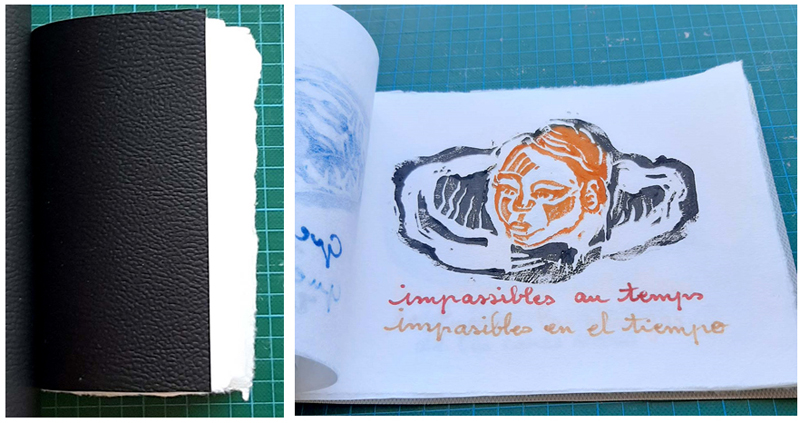 que
que
impassibles au temps
impasibles en el tiempo